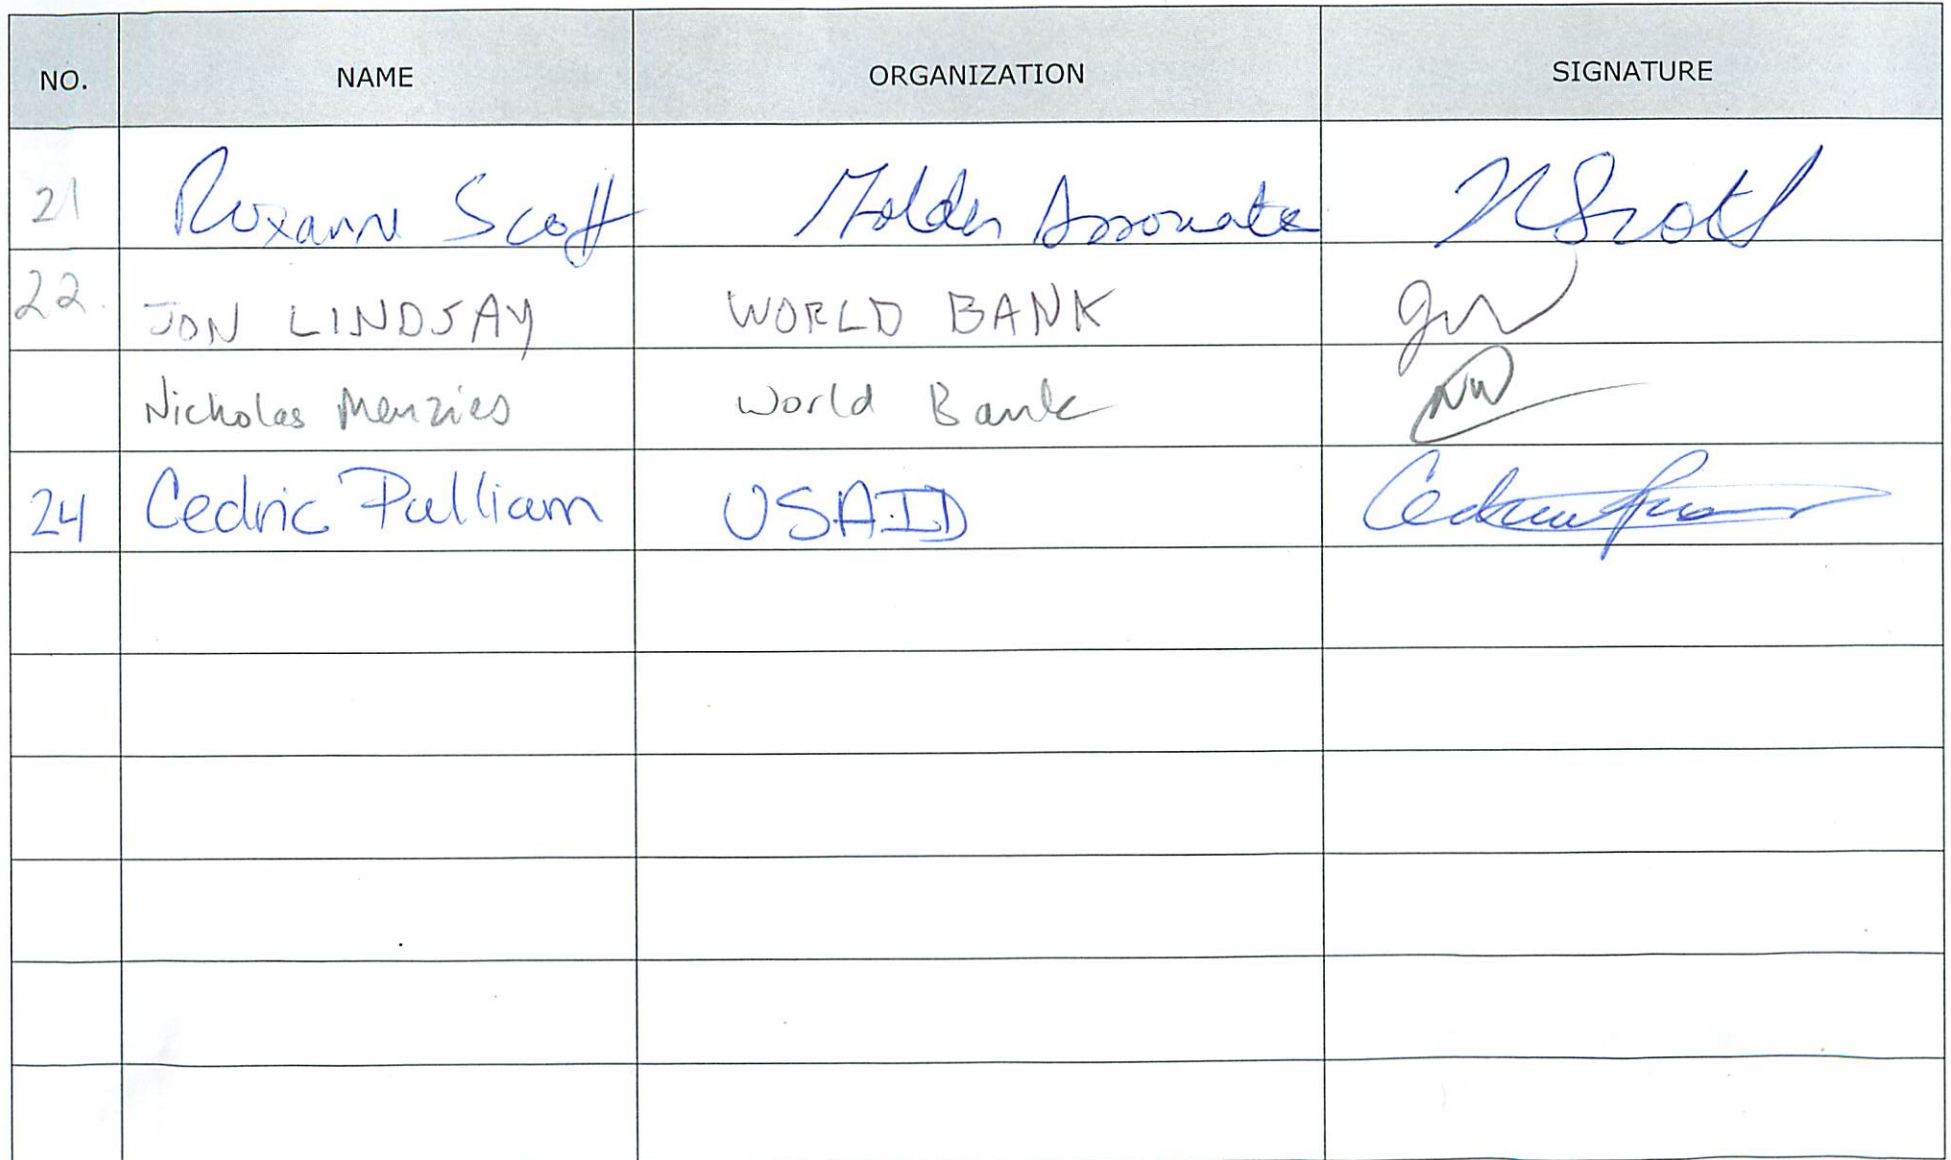 NO. NAME ORGANIZATION SIGNATURE
21 Roxanne Scott Golder Associates RScott
22. JON LINDSAY WORLD BANK
Nicholas Menzies World Bank
24 Cedric Pulliam USAID